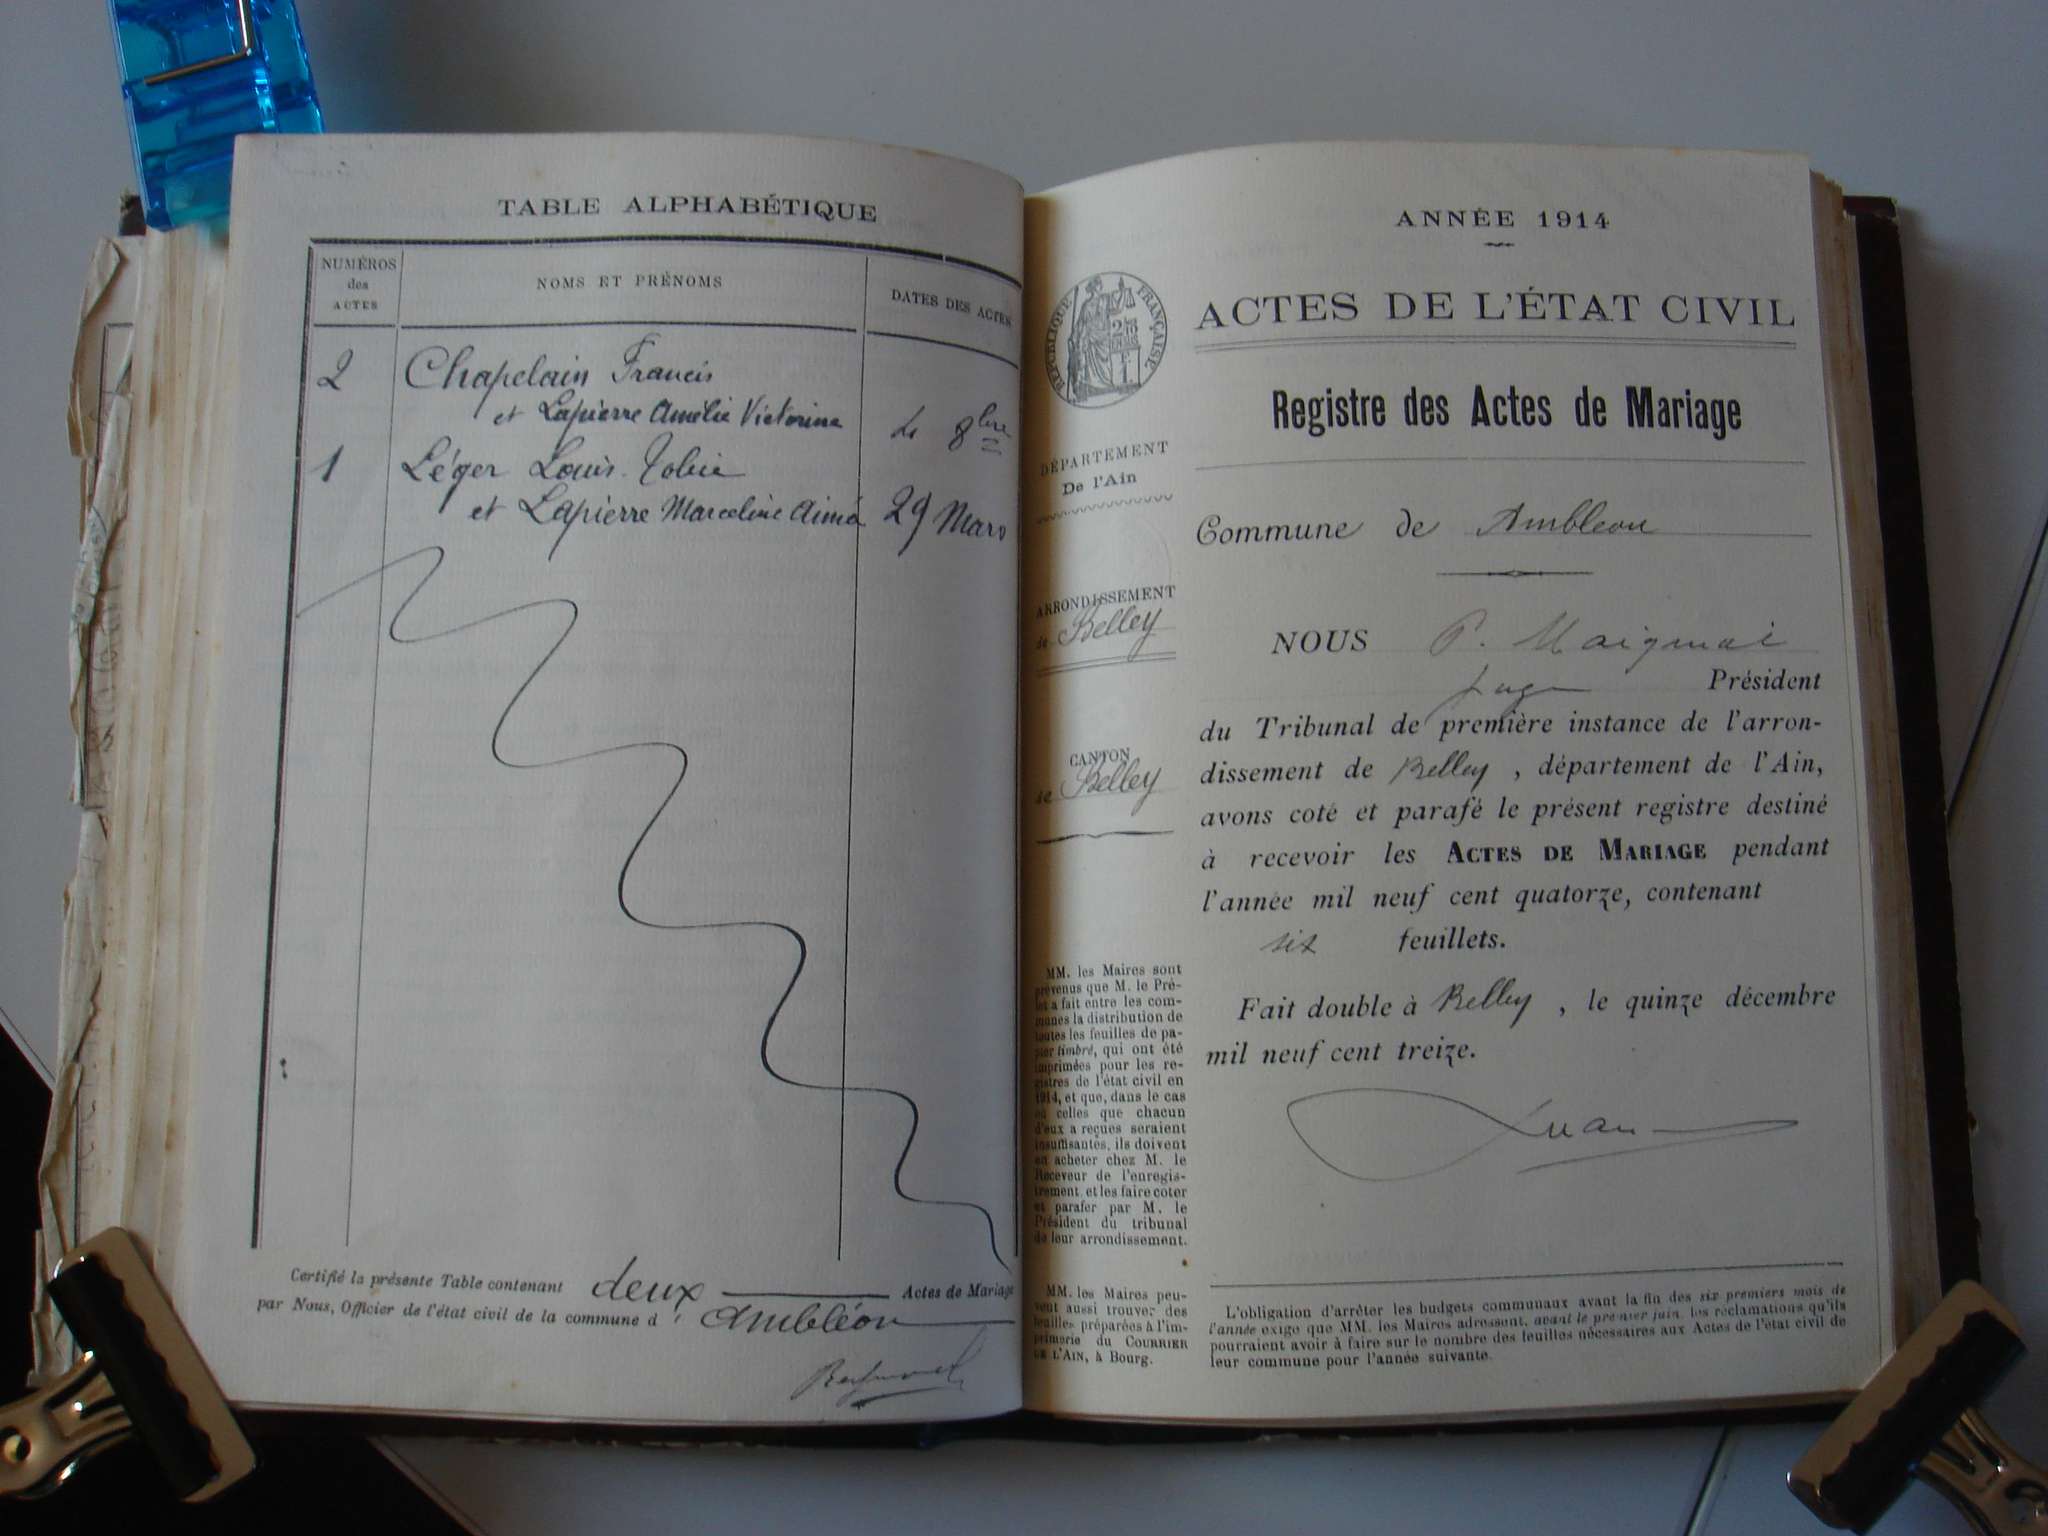 TABLE ALPHABÉTIQUE
NUMÉROS
des
ACTES
NOMS ET PRÉNOMS
DATES DES ACTES
2 Chapelain Francis
et Lapierre Amélie Victorine
8bre
1 Léger Louis
et Lapierre Marceline Aimé 29 Mars
Certifié la présente Table contenant deux Actes de Mariage
par Nous, Officier de l'état civil de la commune d' Ambléon
ANNÉE 1914
RÉPUBLIQUE FRANÇAISE
ACTES DE L'ÉTAT CIVIL
Registre des Actes de Mariage
DÉPARTEMENT
De l'Ain
Commune de Ambleon
ARRONDISSEMENT
de Belley
CANTON
de Belley
NOUS P.
juge Président
du Tribunal de première instance de l'arron-
dissement de Belley, département de l'Ain,
avons coté et parafé le présent registre destiné
à recevoir les ACTES DE MARIAGE pendant
l'année mil neuf cent quatorze, contenant
six feuillets.
Fait double à Belley, le quinze décembre
mil neuf cent treize.
MM. les Maires sont
prévenus que M. le Pré-
fet a fait entre les com-
munes la distribution de
toutes les feuilles de pa-
pier timbré, qui ont été
imprimées pour les re-
gistres de l'état civil en
1914, et que, dans le cas
où celles que chacun
d'eux a reçues seraient
insuffisantes, ils doivent
en acheter chez M. le
Receveur de l'enregis-
trement et les faire coter
et parafer par M. le
Président du tribunal
de leur arrondissement.
MM. les Maires peu-
vent aussi trouver des
feuilles préparées à l'im-
primerie du COURRIER
DE L'AIN, à Bourg.
L'obligation d'arrêter les budgets communaux avant la fin des six premiers mois de
l'année exige que MM. les Maires adressent, avant le premier juin, les réclamations qu'ils
pourraient avoir à faire sur le nombre des feuilles nécessaires aux Actes de l'état civil de
leur commune pour l'année suivante.